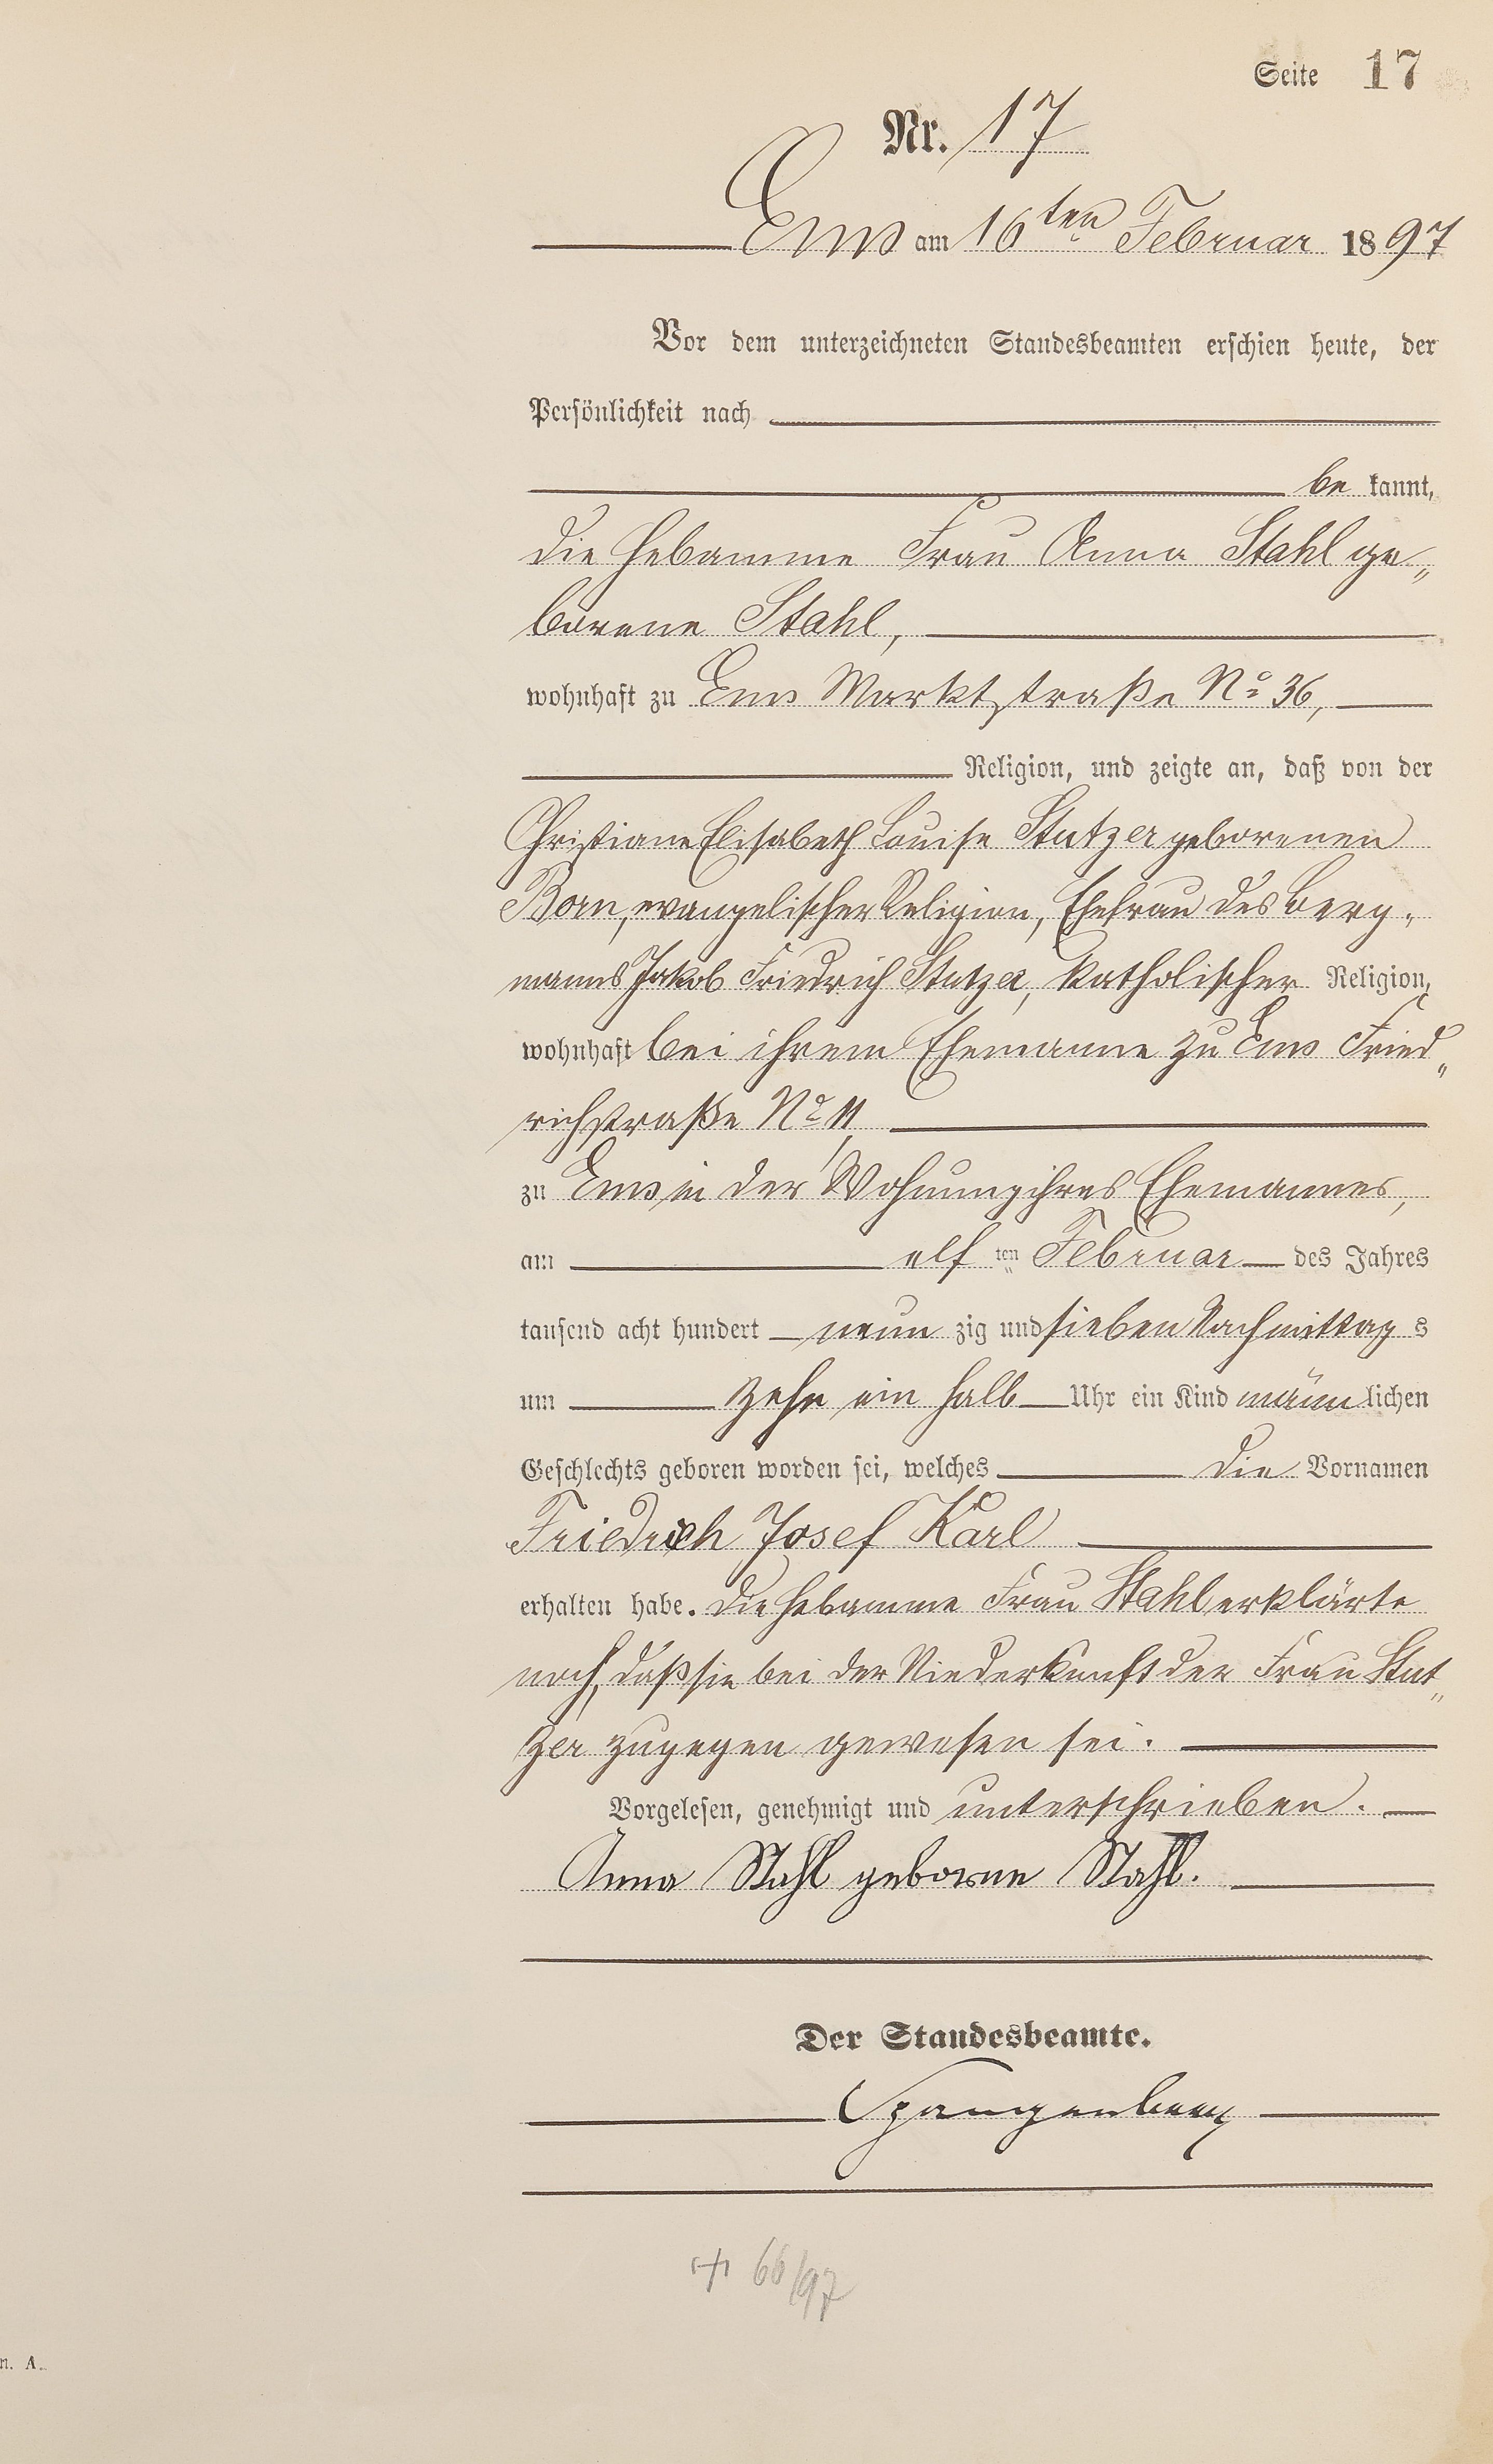 Seite 17
Nr. 17
Ems am 16ten Februar 1897
Vor dem unterzeichneten Standesbeamten erschien heute, der
Persönlichkeit nach
be kannt,
die Hebamme Frau Anna Stahl ge„
borene Stahl,
wohnhaft zu Ems Marktstraße No 36,
Religion, und zeigte an, daß von der
Christiane Elisabeth Louise Stutzer geborenen
Born, evangelischer Religion, Ehefrau des Berg„
manns Jakob Friedrich Stutzer, katholischer Religion,
wohnhaft bei ihrem Ehemanne zu Ems Fried„
richstraße No 11,
zu Ems in der Wohnung ihres Ehemannes,
am elf ten Februar des Jahres
tausend acht hundert neun zig und sieben Nachmittag s
um zehn ein halb Uhr ein Kind männ lichen
Geschlechts geboren worden sei, welches die Vornamen
Friedrich Josef Karl
erhalten habe. Die Hebamme Frau Stahl erklärte
noch, daß sie bei der Niederkunft der Frau Stut„
zer zugegen gewesen sei.
Vorgelesen, genehmigt und unterschrieben.
Anna Stahl geborne Stahl.
Der Standesbeamte.
Spangenberg
+ 66/97
n. A.